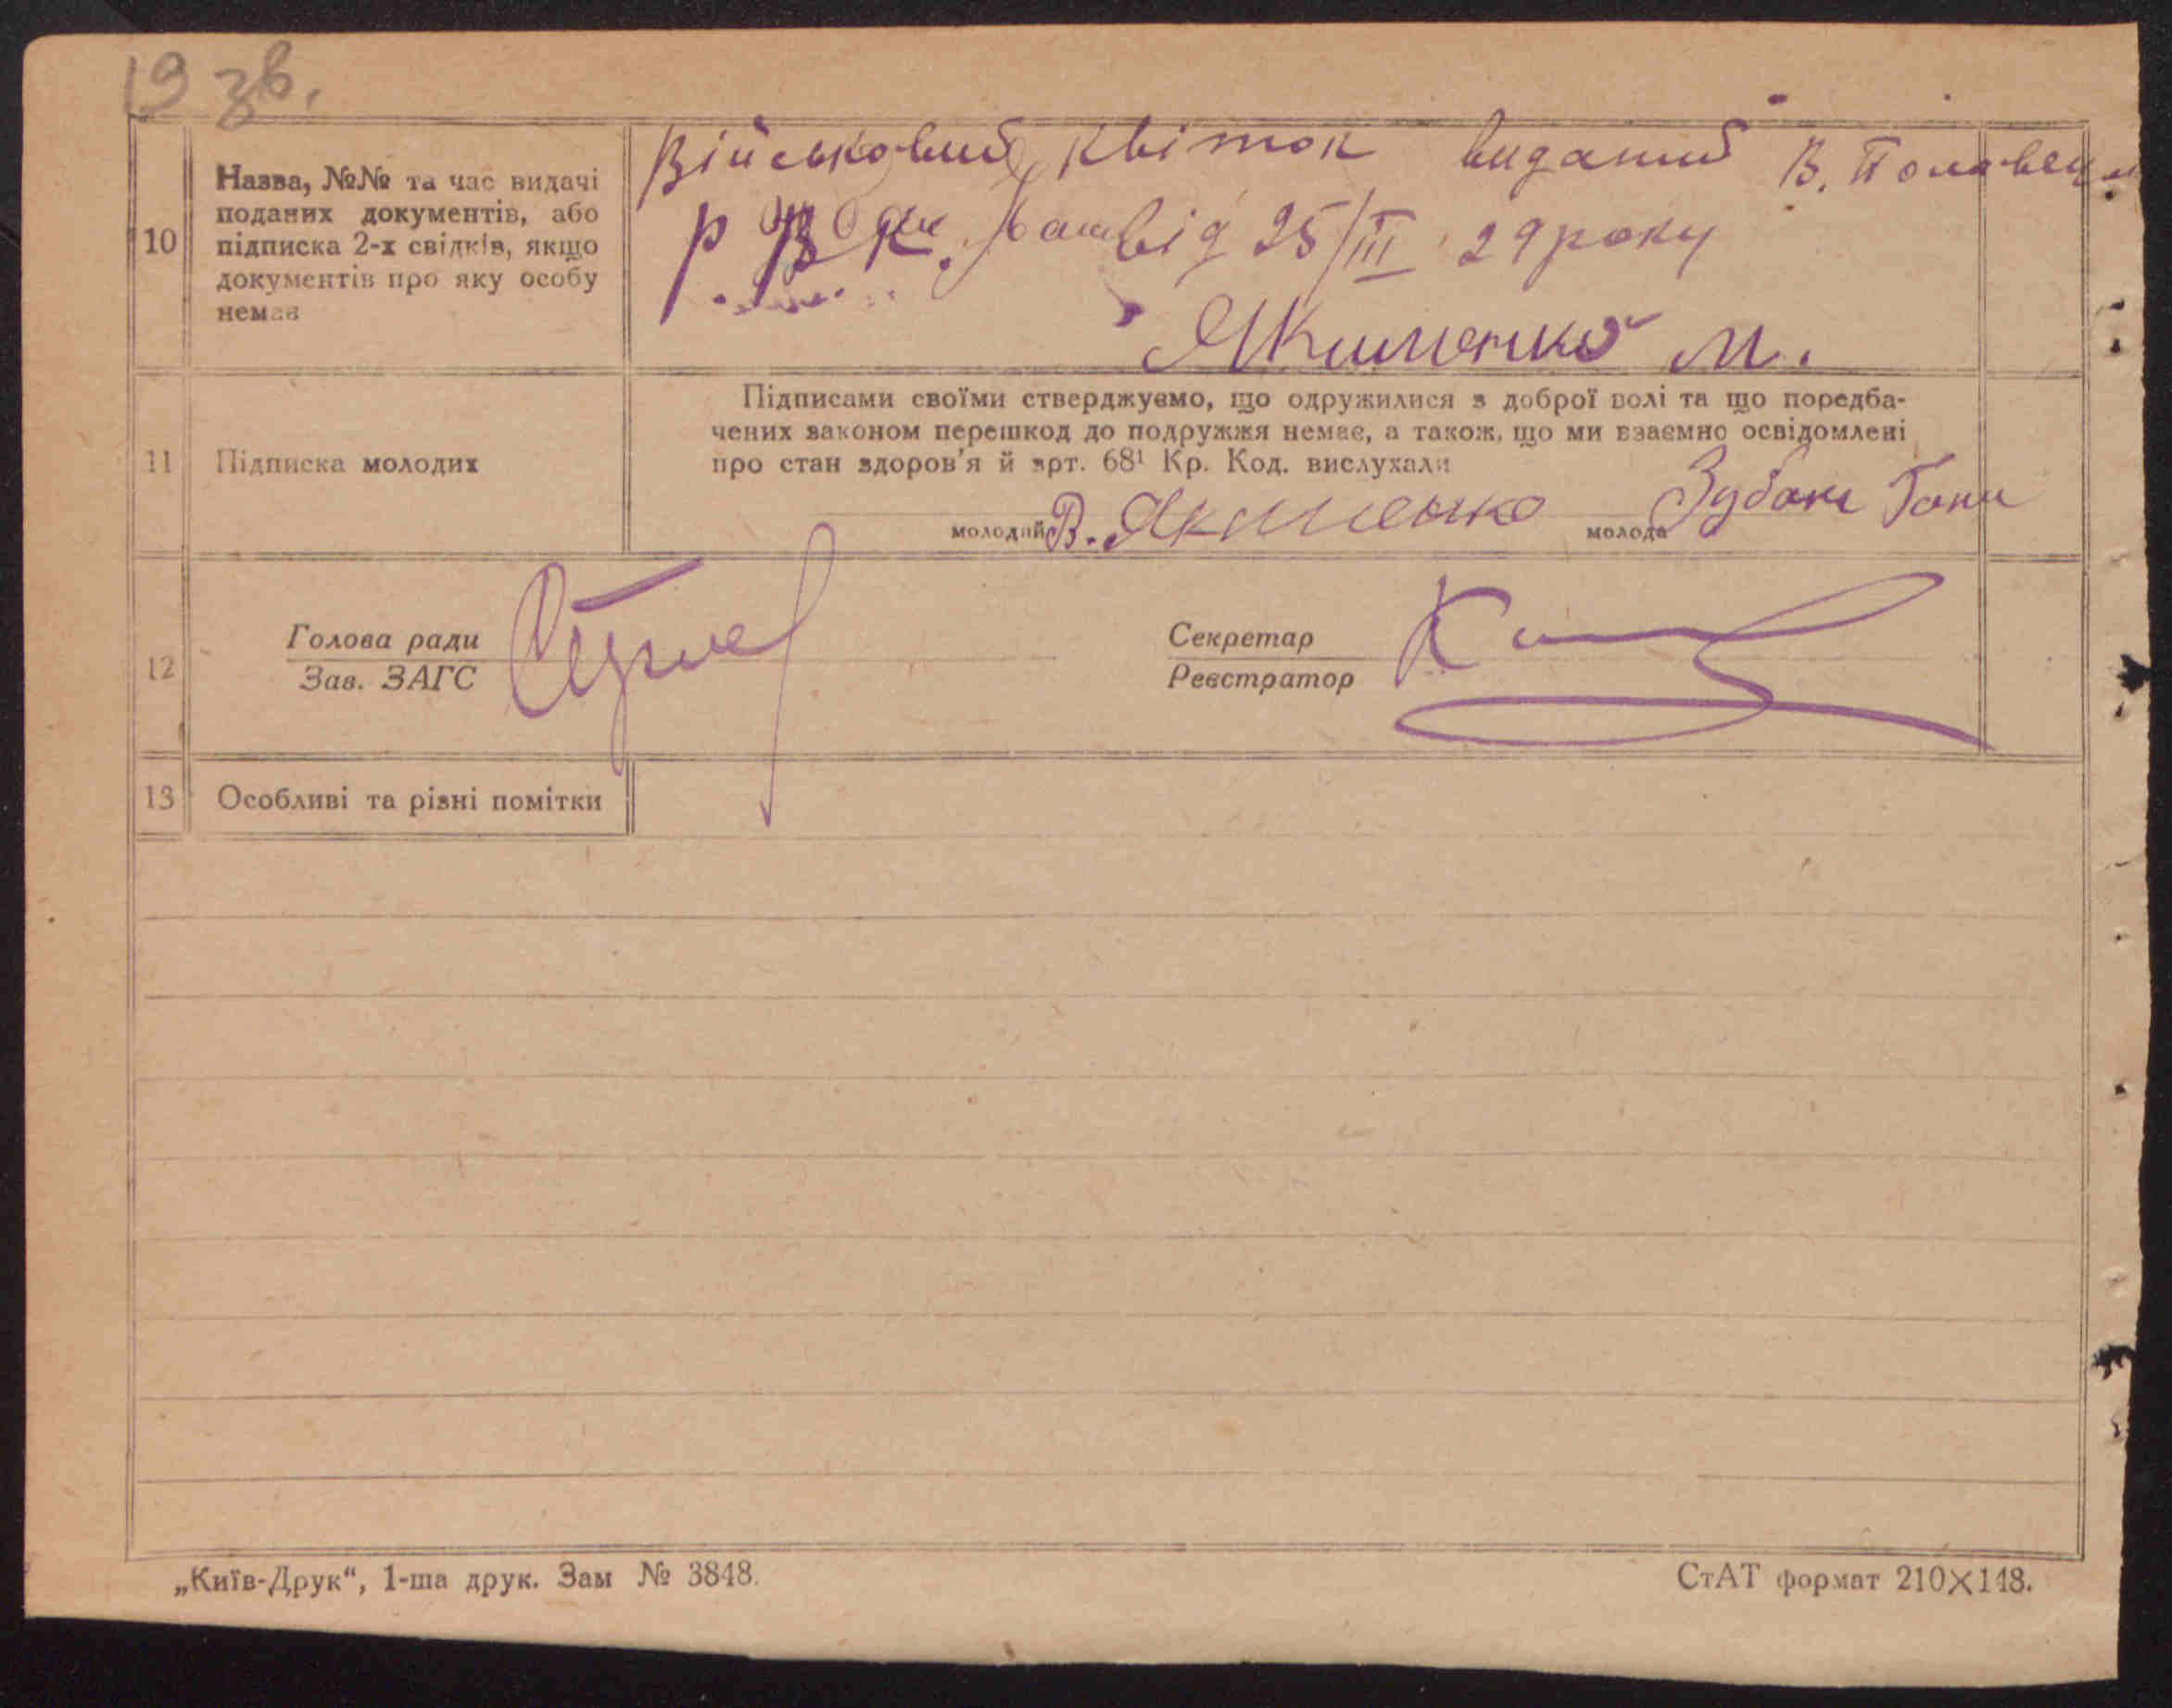 19 зв.
10
Назва, №№ та час видачі
поданих документів, або
підписка 2-х свідків, якщо
документів про яку особу
немає
Військовий квіток виданий В. Половец
Р. В. К. від 25/III 29 року
Якименко М.
11
Підписка молодих
Підписами своїми стверджуємо, що одружилися з доброї волі та що передба-
чених законом перешкод до подружжя немає, а також, що ми взаємно освідомлені
про стан здоров'я й арт. 68¹ Кр. Код. вислухали
молодий В. Якименко молода Зубак
12
Голова ради
Зав. ЗАГС
Секретар
Реєстратор
13
Особливі та різні помітки
„Київ-Друк“, 1-ша друк. Зам № 3848.
СтАТ формат 210×148.